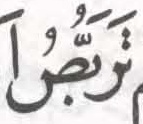 تَرَبُّصُ اَ